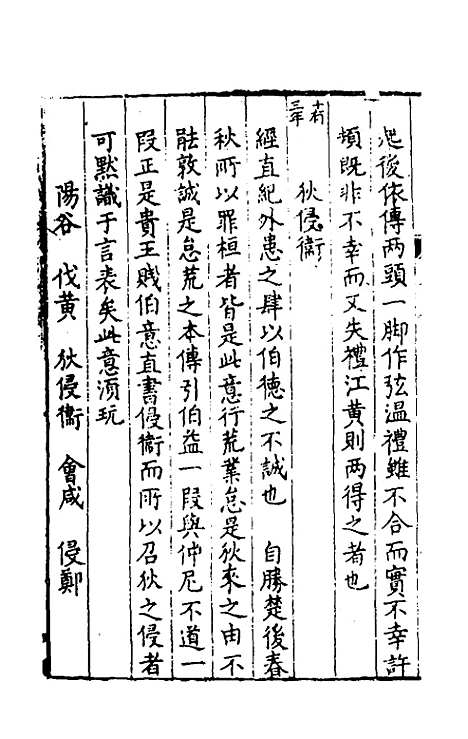 後依傳兩頭一脚作弦溫禮雖不合而實不幸許
頓既非不幸而又失禮江黄則两得之者也
十有三年
狄侵衞
經直紀外患之肆以伯德之不誠也　自勝楚後春
秋所以罪桓者皆是此意行荒業怠是狄來之由不
能敦誠是怠荒之本傳引伯益一段與仲尼不道一
段正是貴王賤伯意直書侵衞而所以召狄之侵者
可默識于言表矣此意須玩
陽谷　伐黄　狄侵衞　會咸　侵鄭